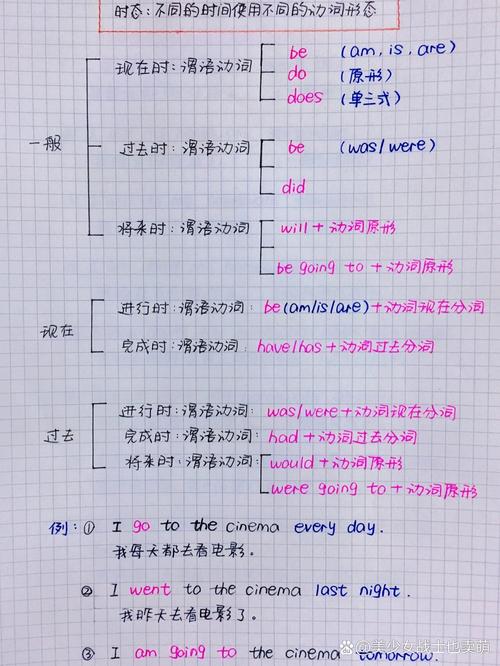 时态:不同的时间使用不同的动词形态
be (am, is, are)
现在时:谓语动词 do (原形)
does (单三式)
一般
过去时:谓语动词 be (was/were)
did
将来时:谓语动词 will + 动词原形
be going to + 动词原形
进行时:谓语动词: be(am/is/are)+动词现在分词
现在
完成时:谓语动词: have/has + 动词过去分词
进行时:谓语动词: was/were+动词现在分词
过去 完成时:谓语动词: had + 动词过去分词
将来时:谓语动词: would + 动词原形
were going to + 动词原形
例: ① I go to the cinema every day.
我每天都去看电影。
② I went to the cinema last night.
我昨天去看电影了。
③ I am going to the cinema tomorrow.
@美少女战士也卖萌